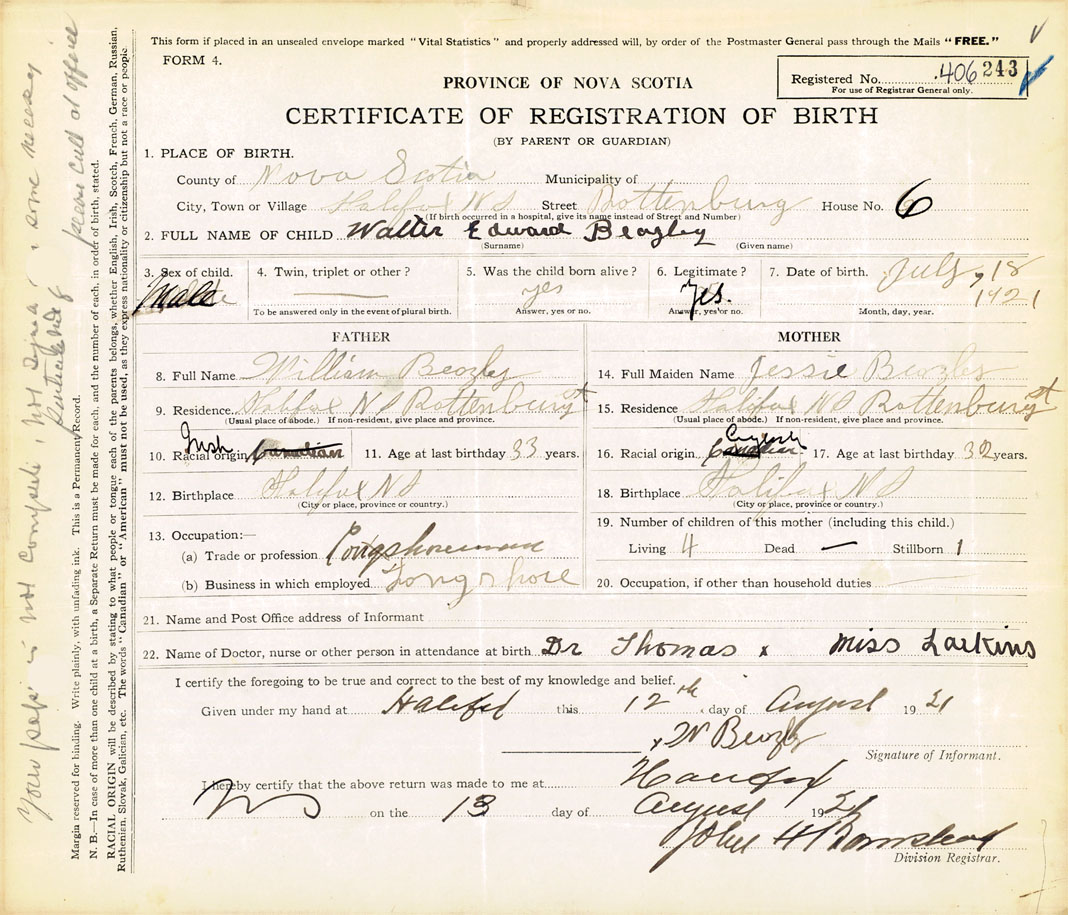 This form if placed in an unsealed envelope marked "Vital Statistics" and properly addressed will, by order of the Postmaster General pass through the Mails "FREE."
FORM 4.
Registered No. 406243
For use of Registrar General only.
PROVINCE OF NOVA SCOTIA
CERTIFICATE OF REGISTRATION OF BIRTH
(BY PARENT OR GUARDIAN)
1. PLACE OF BIRTH.
County of Nova Scotia Municipality of
City, Town or Village Halifax N S Street Rottenburg House No. 6
(If birth occurred in a hospital, give its name instead of Street and Number)
2. FULL NAME OF CHILD Walter Edward Beazley
(Surname) (Given name)
3. Sex of child. 4. Twin, triplet or other? 5. Was the child born alive? 6. Legitimate? 7. Date of birth. July 18
Male yes Yes. 1921
To be answered only in the event of plural birth. Answer, yes or no. Answer, yes or no. Month, day, year.
FATHER MOTHER
8. Full Name William Beazley 14. Full Maiden Name Jessie Beazley
9. Residence Halifax N S Rottenburg st 15. Residence Halifax N S Rottenburg st
(Usual place of abode.) If non-resident, give place and province. (Usual place of abode.) If non-resident, give place and province.
10. Racial origin Irish Canadian 11. Age at last birthday 33 years. 16. Racial origin. Canadian 17. Age at last birthday 32 years.
12. Birthplace Halifax N S 18. Birthplace Halifax N S
(City or place, province or country.) (City or place, province or country.)
13. Occupation:— 19. Number of children of this mother (including this child.)
(a) Trade or profession Longshoreman Living 4 Dead — Stillborn 1
(b) Business in which employed Longshore 20. Occupation, if other than household duties
21. Name and Post Office address of Informant
22. Name of Doctor, nurse or other person in attendance at birth Dr Thomas x Miss Larkins
I certify the foregoing to be true and correct to the best of my knowledge and belief.
Given under my hand at Halifax this 12th day of August 1921
x W Beazley
Signature of Informant.
I hereby certify that the above return was made to me at Halifax
N S on the 13 day of August 1921
John H
Division Registrar.
Your paper is not complete
please call at office
Margin reserved for binding. Write plainly, with unfading ink. This is a Permanent Record.
N. B.—In case of more than one child at a birth, a Separate Return must be made for each, and the number of each, in order of birth, stated.
RACIAL ORIGIN will be described by stating to what people or tongue each of the parents belongs, whether English, Irish, Scotch, French, German, Russian,
Ruthenian, Slovak, Galician, etc. The words "Canadian" or "American" must not be used, as they express nationality or citizenship but not a race or people.